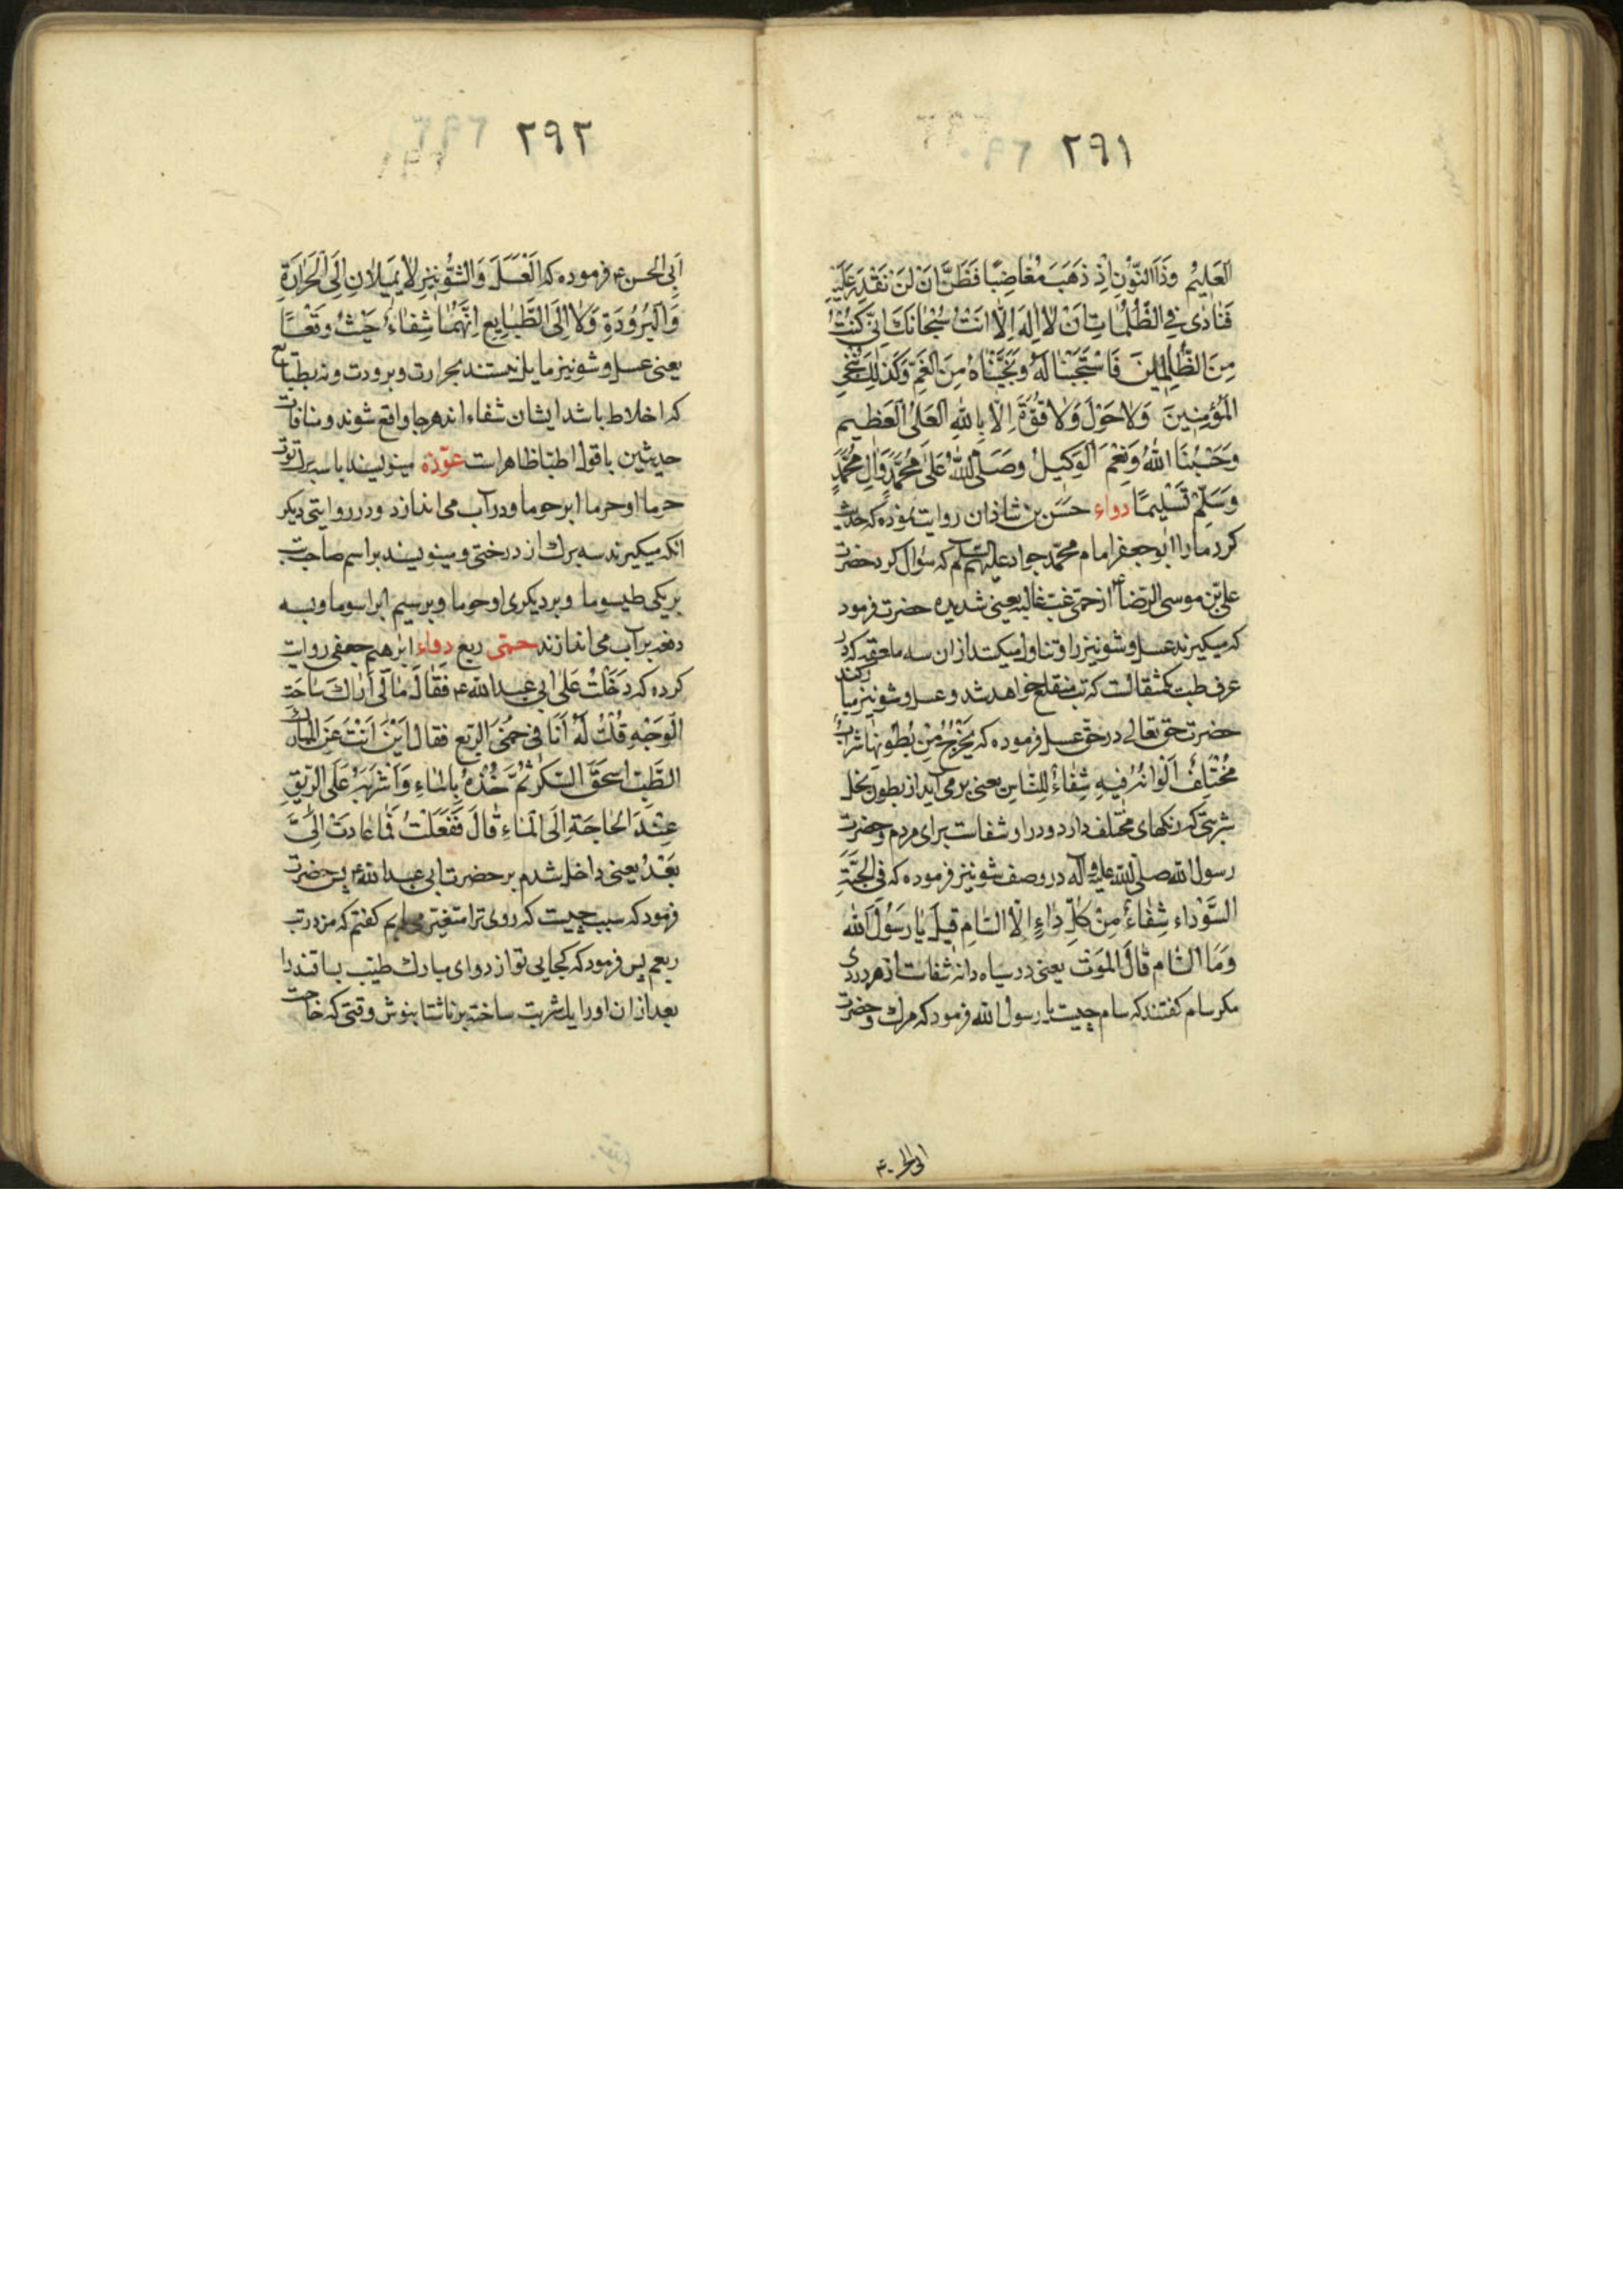 ٢٩١
العَلِیْمُ وَذَا النُّوْنِ اِذ ذَهَبَ مُغَاضِبًا فَظَنَّ اَنْ لَنْ نَقْدِرَ عَلَیْهِ
فَنَادٰی فِی الظُّلُمَاتِ اَنْ لَا اِلٰهَ اِلَّا اَنْتَ سُبْحَانَكَ اِنِّی كُنْتُ
مِنَ الظّٰلِمِیْنَ فَاسْتَجَبْنَا لَهُ وَنَجَّیْنَاهُ مِنَ الْغَمِّ وَكَذٰلِكَ نُنْجِی
المُؤْمِنِینَ وَلَا حَوْلَ وَلَا قُوَّةَ اِلَّا بِاللّٰهِ الْعَلِیِّ الْعَظِیمِ
وَحَسْبُنَا اللّٰهُ وَنِعْمَ الْوَكِیلُ وَصَلَّی اللّٰهُ عَلٰی مُحَمَّدٍ وَآلِ مُحَمَّدٍ
وَسَلَّمَ تَسْلِیمًا دواء حَسَن بن شاذان روایت نموده که حدیث
کرد مارا ابوجعفر امام محمّد جواد علیه السلم که سؤال کرد حضرت
علی بن موسی الرضا ع از حمّی غب غالبه یعنی شدیده حضرت فرمود
که میکیرند عسل و شونیز را و تناول میکند از ان سه ملعقه که در
عرف طب یکمثقالست که تب منقلع خواهد شد و عسل و شونیز مبارکند
حضرت حق تعالی در حق عسل فرموده که یَخْرُجُ مِنْ بُطُونِهَا شَرَابٌ
مُخْتَلِفٌ اَلْوَانُهُ فِیهِ شِفَاءٌ لِلنَّاسِ یعنی برمی آید از بطون نحل
شربتی که رنکهای مختلف دارد و در او شفاست برای مردم و حضرت
رسول الله صلی الله علیه و آله در وصف شونیز فرموده که فِی الْحَبَّةِ
السَّوْدَاءِ شِفَاءٌ مِنْ كُلِّ دَاءٍ اِلَّا السَّامَ قِیلَ یَا رَسُولَ اللّٰه
وَمَا السَّام قَالَ المَوْتُ یعنی در سیاه دانه شفاست از هر دردی
مکر سام کفتند که سام چیست یا رسول الله فرمود که مرك و حضرت
٢٩٢
اَبِی الحسن ع فرموده که اَلْعَسَلَ وَالشُّونِیز لَا یَمِیلَانِ اِلَی الْحَرَارَةِ
وَالْبُرُودَةِ وَلَا اِلَی الطَّبَایِعِ اِنَّهُمَا شِفَاءٌ حَیْثُ وَقَعَا
یعنی عسل و شونیز مایل نیستند بحرارت و برودت و نه بطبایع
که اخلاط باشد ایشان شفاء اند هرجا واقع شوند و منافات
حدیثین با قول اطبّا ظاهر است عوّذه مینویسند با سه برك توت
حرما او حرما ابرحوما و در آب می اندازد و در روایتی دیکر
انکه میکیرند سه برك از درختی و مینویسند بر اسم صاحب تب
بر یکی طیسوما و بر دیکری اوحوما و بر سیم ابراسوما و بسه
دفعه بر آب می اندازند حمّی ربع دواء ابرهیم جعفی روایت
کرده که دَخَلْتُ عَلٰی ابی عبد الله ع فَقَالَ مَا لِی اَرَاكَ سَاحَنَه
الْوَجْهِ قُلْتُ لَهُ اَنَا فِی حُمّی الرِّبْع فقال اَیْنَ اَنْتَ عَنِ المُبَارَك
الطَّیِّبِ اِسْحَقِ السُّكَّر ثُمَّ خُذْهُ بِالْمَاءِ وَاشْرَبْهُ عَلَی الرِّیقِ
عِنْدَ الحَاجَةِ اِلَی الْمَاءِ قَالَ فَفَعَلْتُ فَمَا عَادَتْ اِلَیَّ
بَعْدُ یعنی داخل شدم بر حضرت ابی عبد الله ع پس حضرت
فرمود که سبب چیست که روی ترا متغیر می بینم کفتم که من در تب
ربعم پس فرمود که کجایی تو از دوای مبارك طیّب بسا قند را
بعد از ان اورا با آب شربت ساخته برناشتا بنوش وقتی که حاجت